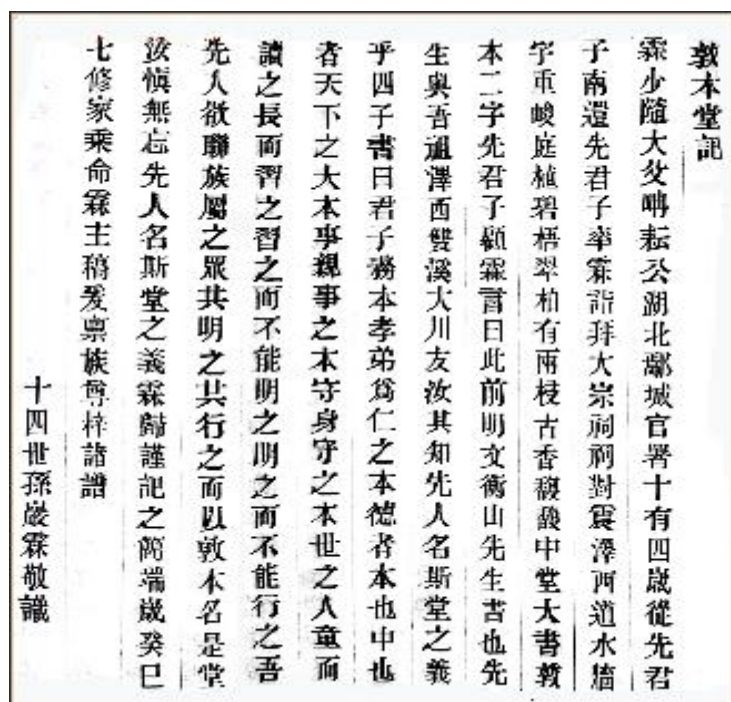 敦本堂記
霖少隨大父嘯耘公湖北鄖城官署十有四歲從先君
子南還先君子率霖詣拜大宗祠祠對震澤西道水牆
宇重峻庭植碧梧翠柏有兩枝古香馥馥中堂大書敦
本二字先君子顧霖言曰此前明文衡山先生書也先
生與吾澤西雙溪大川友汝其知先人名斯堂之義
乎四子書曰君子務本孝弟爲仁之本德者本也中也
者天下之大本事親事之本守身守之本世之人童而
讀之長而習之習之而不能明之明之而不能行之吾
先人欲聯族屬之眾共明之共行之而以敦本名是堂
汝愼無忘先人名斯堂之義霖歸謹記之簡端歲癸巳
七修家乘命霖主稿爰稟族尊梓諸譜
十四世孫巖霖敬識